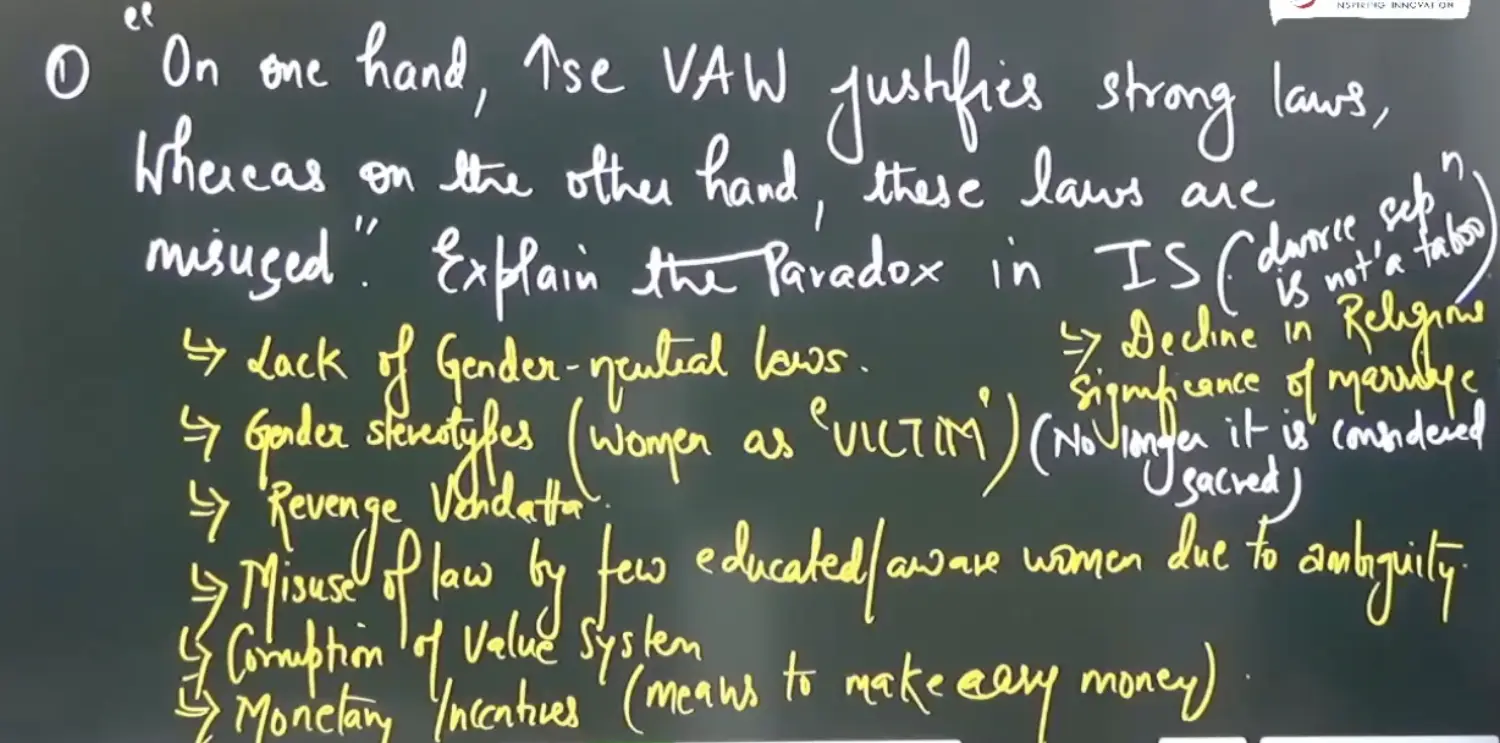 NSPIRING INNOVATION
① "On one hand, ↑se VAW justifies strong laws,
Whereas on the other hand, these laws are
misused". Explain the Paradox in IS (divorce sepⁿ
is not a taboo)
↳ Lack of Gender-neutral laws.
↳ Gender stereotypes (Women as 'VICTIM')
↳ Revenge Vendatta.
↳ Decline in Religious
significance of marriage
(No longer it is considered
sacred)
↳ Misuse of law by few educated/aware women due to ambiguity.
↳ Corruption of Value System
↳ Monetary Incentives (means to make easy money).